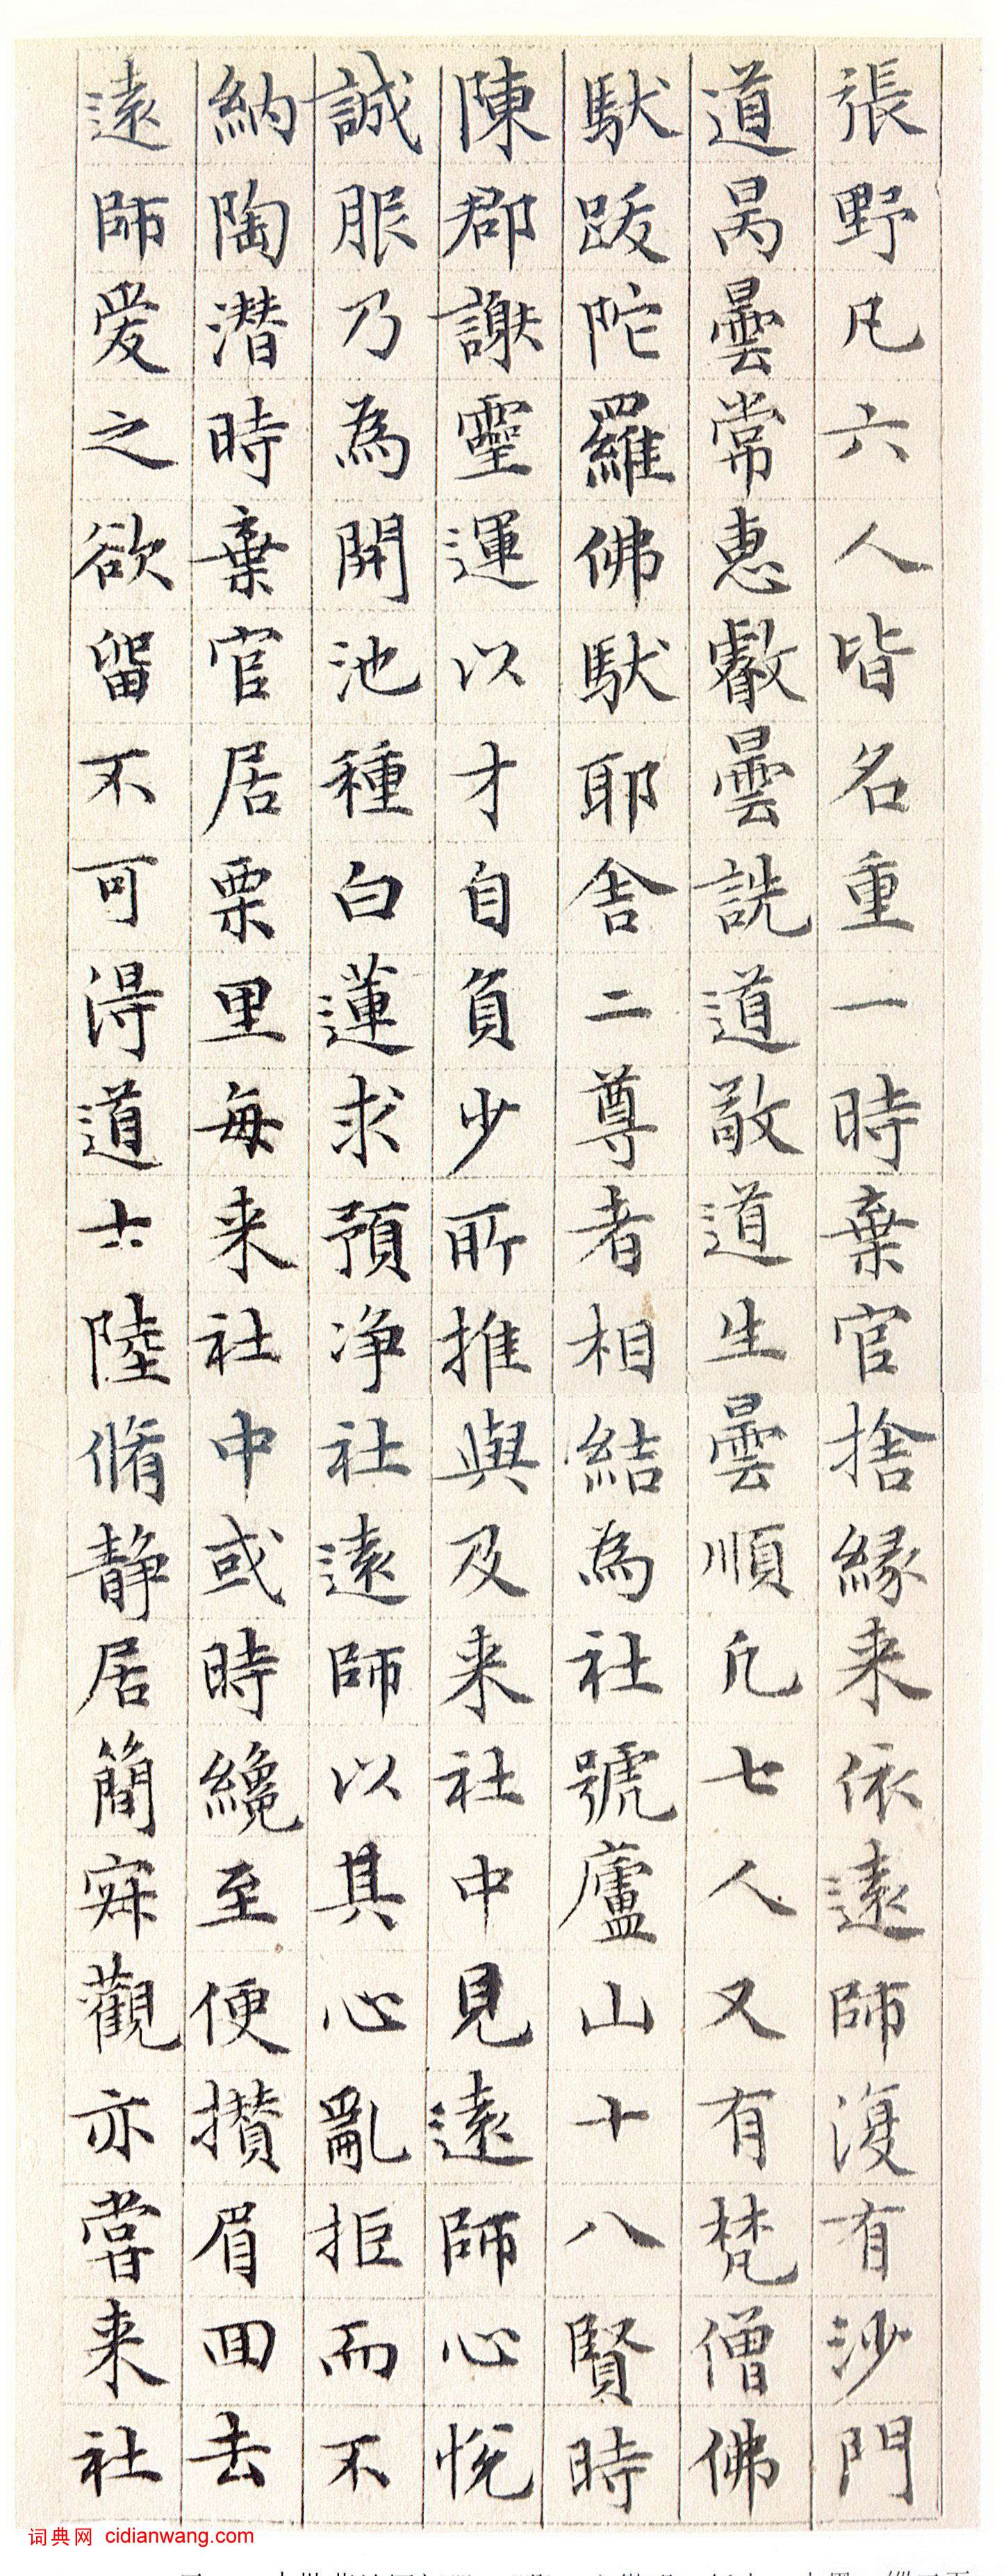 張野凡六人皆名重一時棄官捨緣来依遠師復有沙門
道昺曇常惠叡曇詵道敬道生曇順凡七人又有梵僧佛
馱跋陀羅佛馱耶舍二尊者相結為社號廬山十八賢時
陳郡謝靈運以才自負少所推與及来社中見遠師心悅
誠服乃為開池種白蓮求預淨社遠師以其心亂拒而不
納陶潛時棄官居栗里每来社中或時纔至便攢眉回去
遠師愛之欲留不可得道士陸脩靜居簡寂觀亦嘗来社
词典网 cidianwang.com